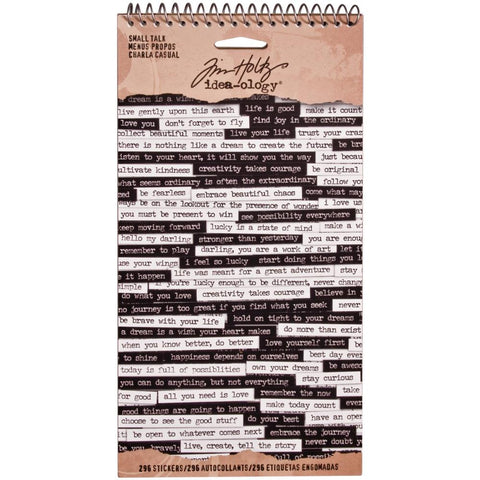 SMALL TALK
MENUS PROPOS
CHARLA CASUAL
Tim Holtz
idea-ology®
a dream is a wish
live gently upon this earth life is good make it count
love you don't forget to fly find joy in the ordinary
collect beautiful moments live your life trust your crazy
there is nothing like a dream to create the future be bra
listen to your heart, it will show you the way just becau
cultivate kindness creativity takes courage be original
what seems ordinary is often the extraordinary follow you
ed be fearless embrace beautiful chaos come what may
ays be on the lookout for the presence of wonder i love us
you must be present to win see possibility everywhere
keep moving forward lucky is a state of mind make a wi
hello my darling stronger than yesterday you are enough
remember to play darling, you are a work of art
use your wings i feel so lucky start doing things you l
it happen life was meant for a great adventure stay
simple if you're lucky enough to be different, never change
do what you love creativity takes courage believe in
no journey is too great if you find what you seek never
be brave with your life hold on tight to your dreams
a dream is a wish your heart makes do more than exist
when you know better, do better love yourself first be
to shine happiness depends on ourselves best day ever
today is full of possiblities own your dreams be aweso
you can do anything, but not everything stay curious
for good all you need is love remember the now
make today count ever
good things are going to happen do your best
choose to see the good stuff have an open
it be open to whatever comes next embrace the journey
be you live, create, tell the story never doubt yo
is full of possibilities
296 STICKERS/296 AUTOCOLLANTS/296 ETIQUETAS ENGOMADAS